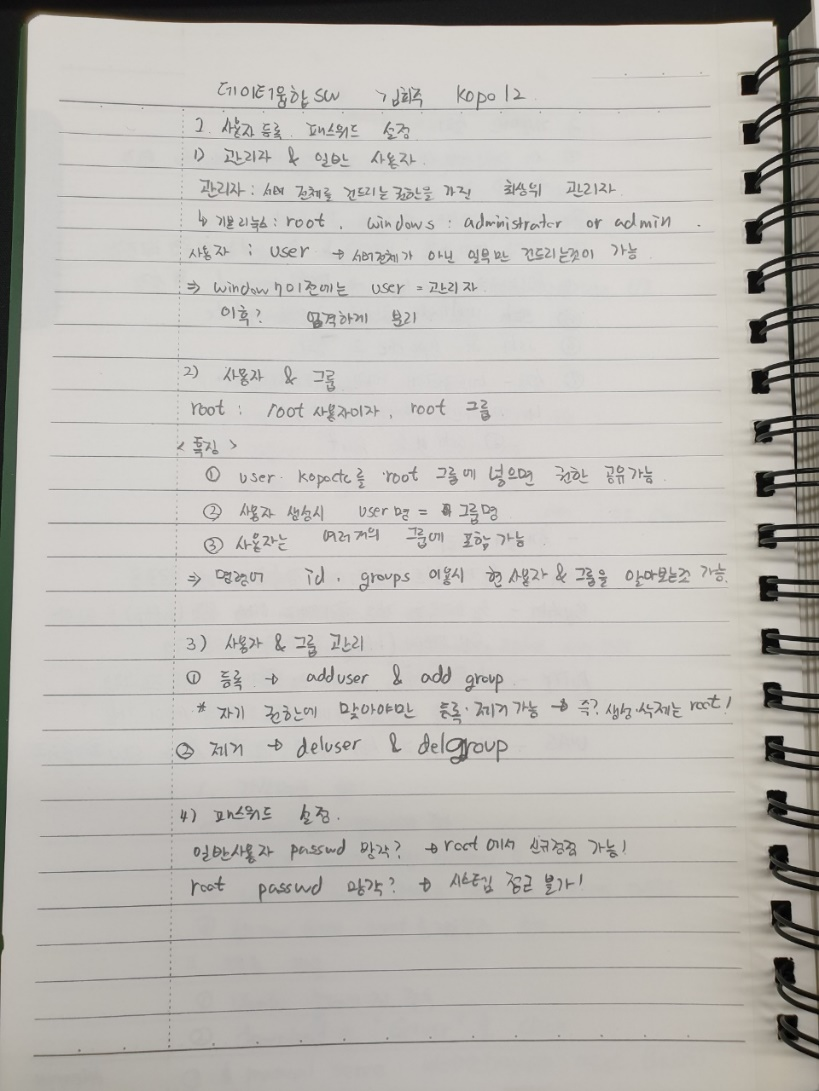 데이터융합SW 김희주 kopo12
2. 사용자 등록. 패스워드 설정
1) 관리자 & 일반 사용자.
관리자 : 서버 전체를 건드리는 권한을 가진 최상위 관리자.
↳ 기본 리눅스 : root. windows : administrater or admin.
사용자 : user → 서버전체가 아닌 일부만 건드리는것이 가능
⇒ window 7 이전에는 user = 관리자.
이후? 엄격하게 분리
2) 사용자 & 그룹
root : root 사용자이자, root 그룹
<특징>
① user. kopoctc를 root 그룹에 넣으면 권한 공유가능.
② 사용자 생성시 user명 = 그룹명
③ 사용자는 여러개의 그룹에 포함 가능
⇒ 명령어 id, groups 이용시 현 사용자 & 그룹을 알아보는것 가능.
3) 사용자 & 그룹 관리
① 등록 → adduser & add group.
* 자기 권한에 맞아야만 등록·제거 가능 → 즉? 생성·삭제는 root!
② 제거 → deluser & delgroup
4) 패스워드 설정.
일반사용자 passwd 망각? → root 에서 신규 가능!
root passwd 망각? → 시스템 접근 불가!